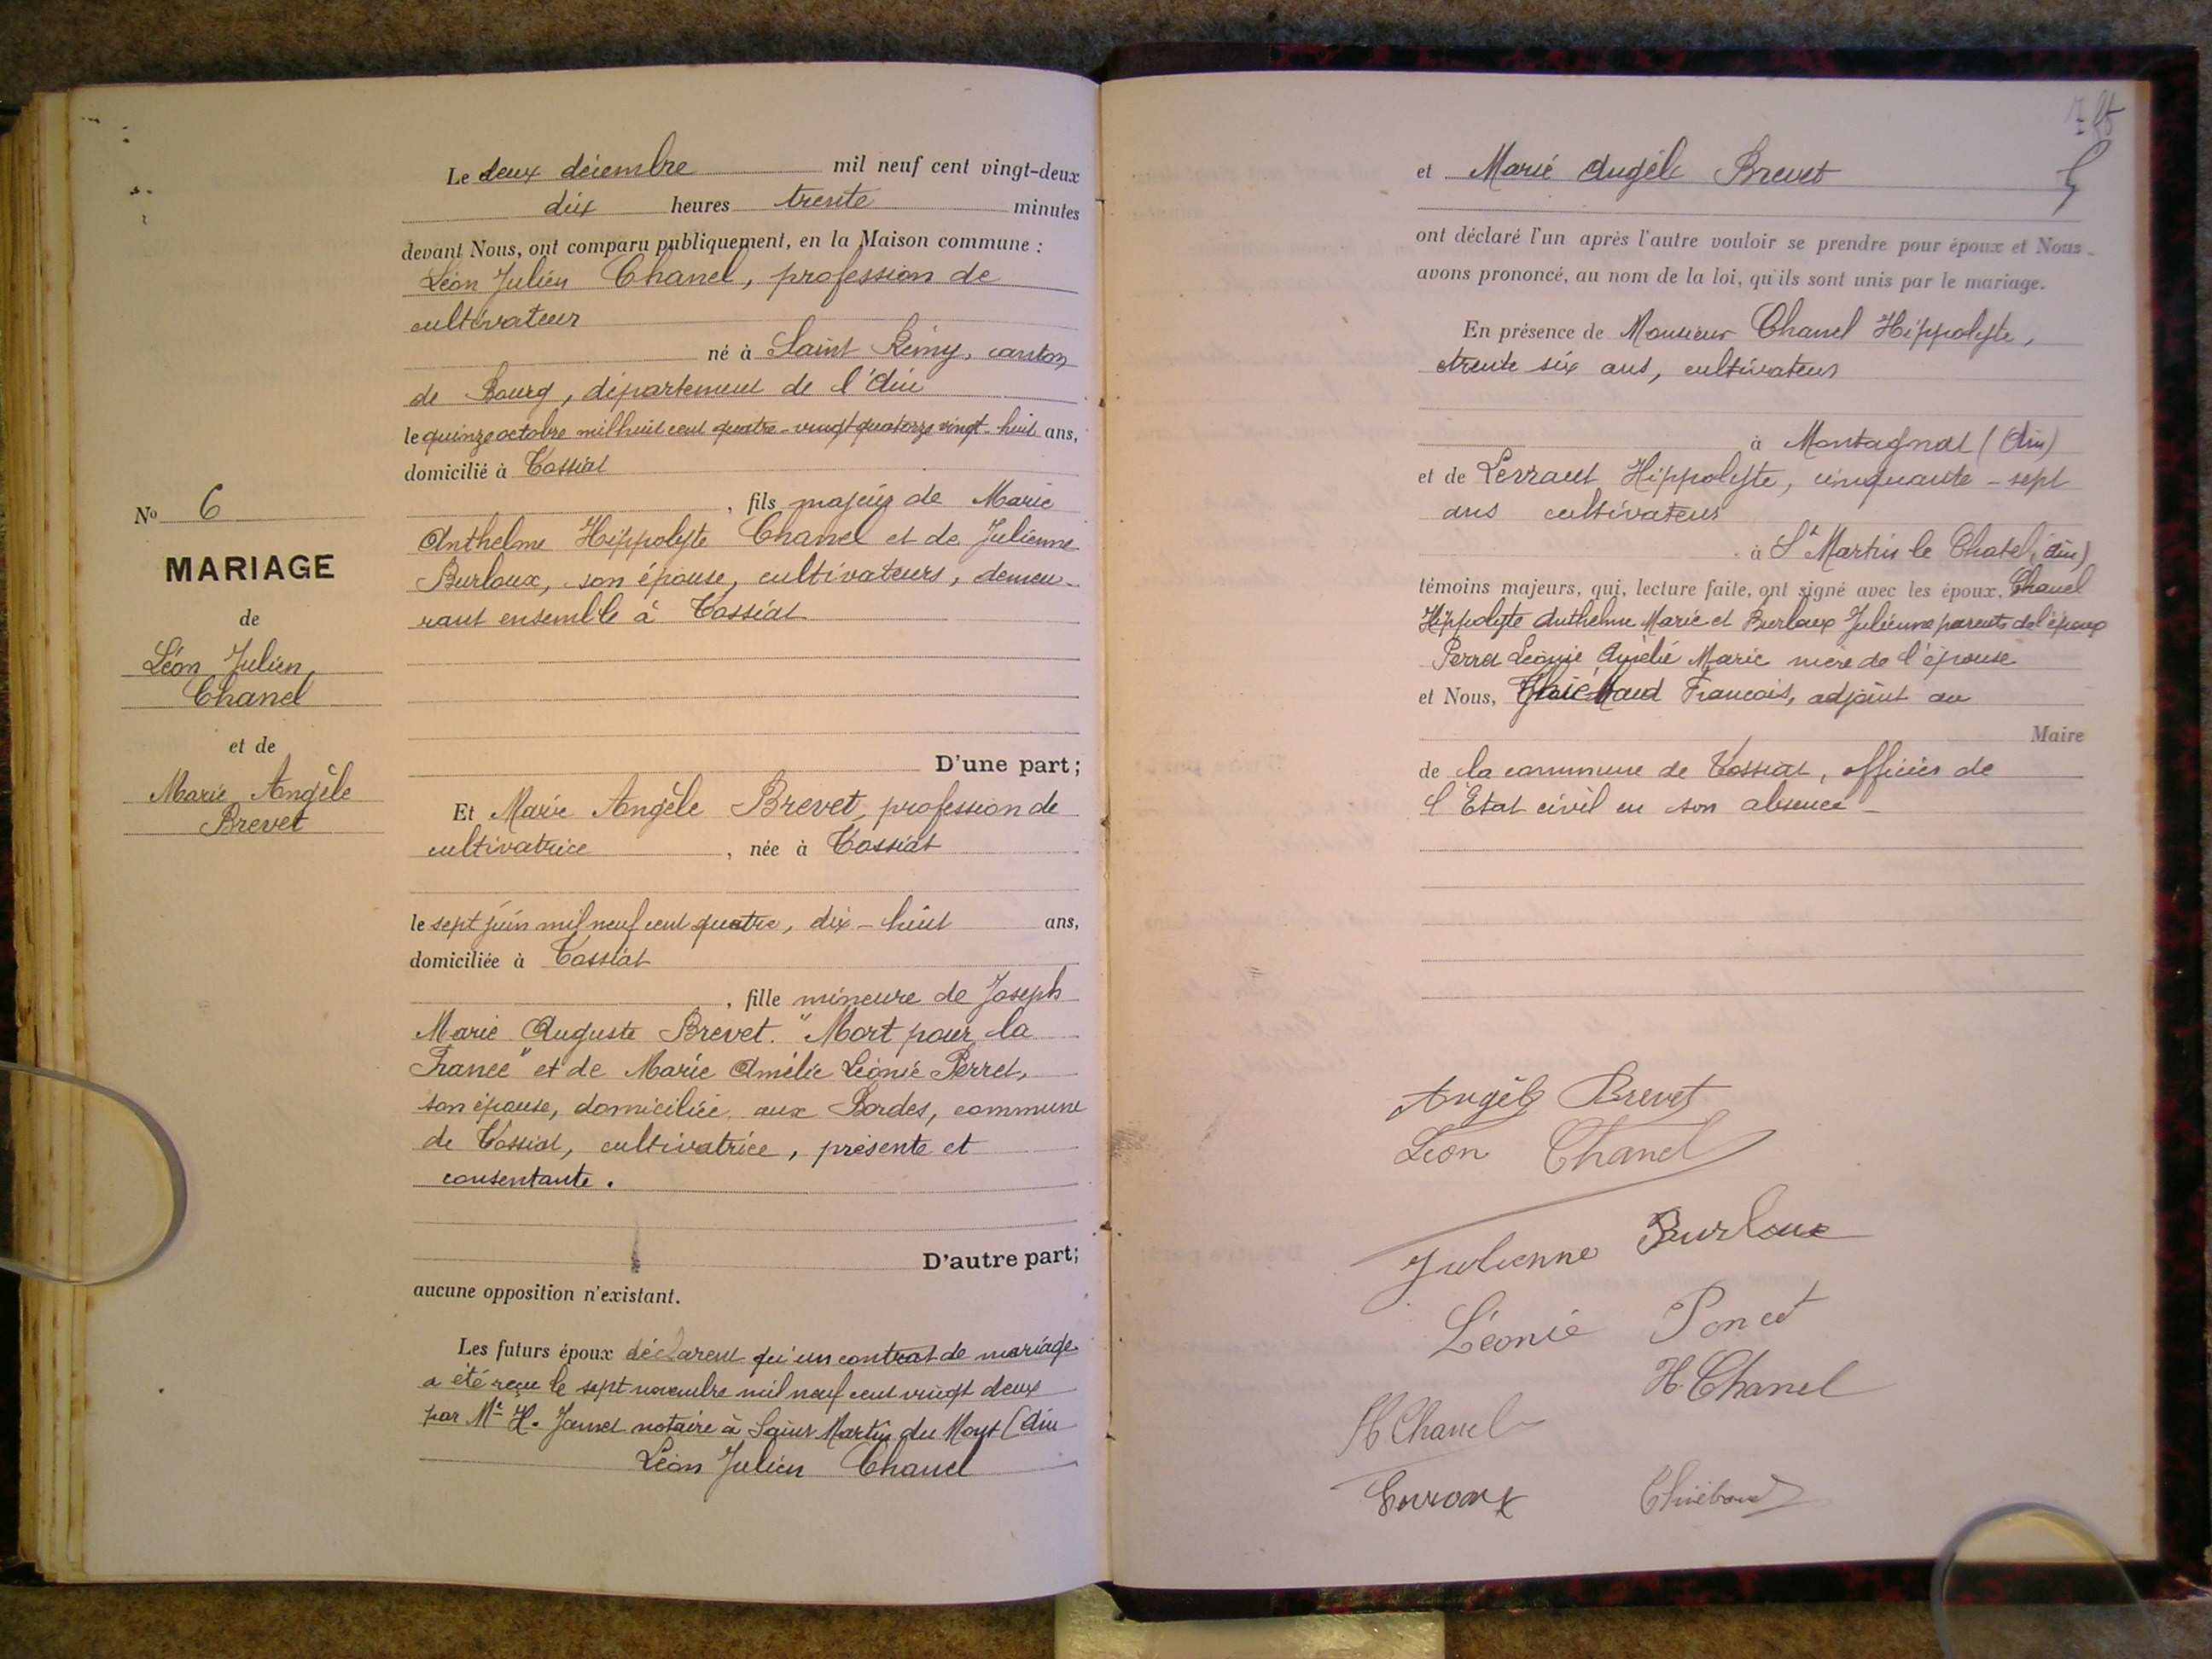 Le deux décembre mil neuf cent vingt-deux
dix heures trente minutes
devant Nous, ont comparu publiquement, en la Maison commune :
Léon Julien Chanel, profession de
cultivateur
né à Saint Rémy, canton
de Bourg, département de l'Ain
le quinze octobre mil huit cent quatre-vingt quatorze vingt-huit ans,
domicilié à Tossiat
, fils majeur de Marie
Anthelme Hippolyte Chanel et de Julienne
Burloux, son épouse, cultivateurs, demeu-
rant ensemble à Tossiat
D'une part;
Et Marie Angèle Brevet, profession de
cultivatrice, née à Tossiat
le sept juin mil neuf cent quatre, dix-huit ans,
domiciliée à Tossiat
, fille mineure de Joseph
Marie Auguste Brevet. "Mort pour la
France" et de Marie Amélie Léonie Perret,
son épouse, domiciliée aux Bordes, commune
de Tossiat, cultivatrice, présente et
consentante.
D'autre part;
aucune opposition n'existant.
Les futurs époux déclarent qu'un contrat de mariage
a été reçu le sept novembre mil neuf cent vingt deux
par Me H. notaire à Saint Martin du Mont (Ain
Léon Julien Chanel
No 6
MARIAGE
de
Léon Julien
Chanel
et de
Marie Angèle
Brevet
et Marie Angèle Brevet
ont déclaré l'un après l'autre vouloir se prendre pour époux et Nous
avons prononcé, au nom de la loi, qu'ils sont unis par le mariage.
En présence de Monsieur Chanel Hippolyte,
trente six ans, cultivateur
à Montagnat (Ain)
et de Perraut Hippolyte, cinquante-sept
ans cultivateur
à St Martin le Chatel (Ain)
témoins majeurs, qui, lecture faite, ont signé avec les époux, Chanel
Hippolyte Anthelme Marie et Burloux Julienne parents de l'époux
Perret Léonie Amélie Marie mère de l'épouse
et Nous, Thiébaud François, adjoint au
Maire
de la commune de Tossiat, officier de
l'Etat civil en son absence -
Angèle Brevet
Léon Chanel
Julienne Burloux
Léonie
H. Chanel
H Chanel
Thiébaud